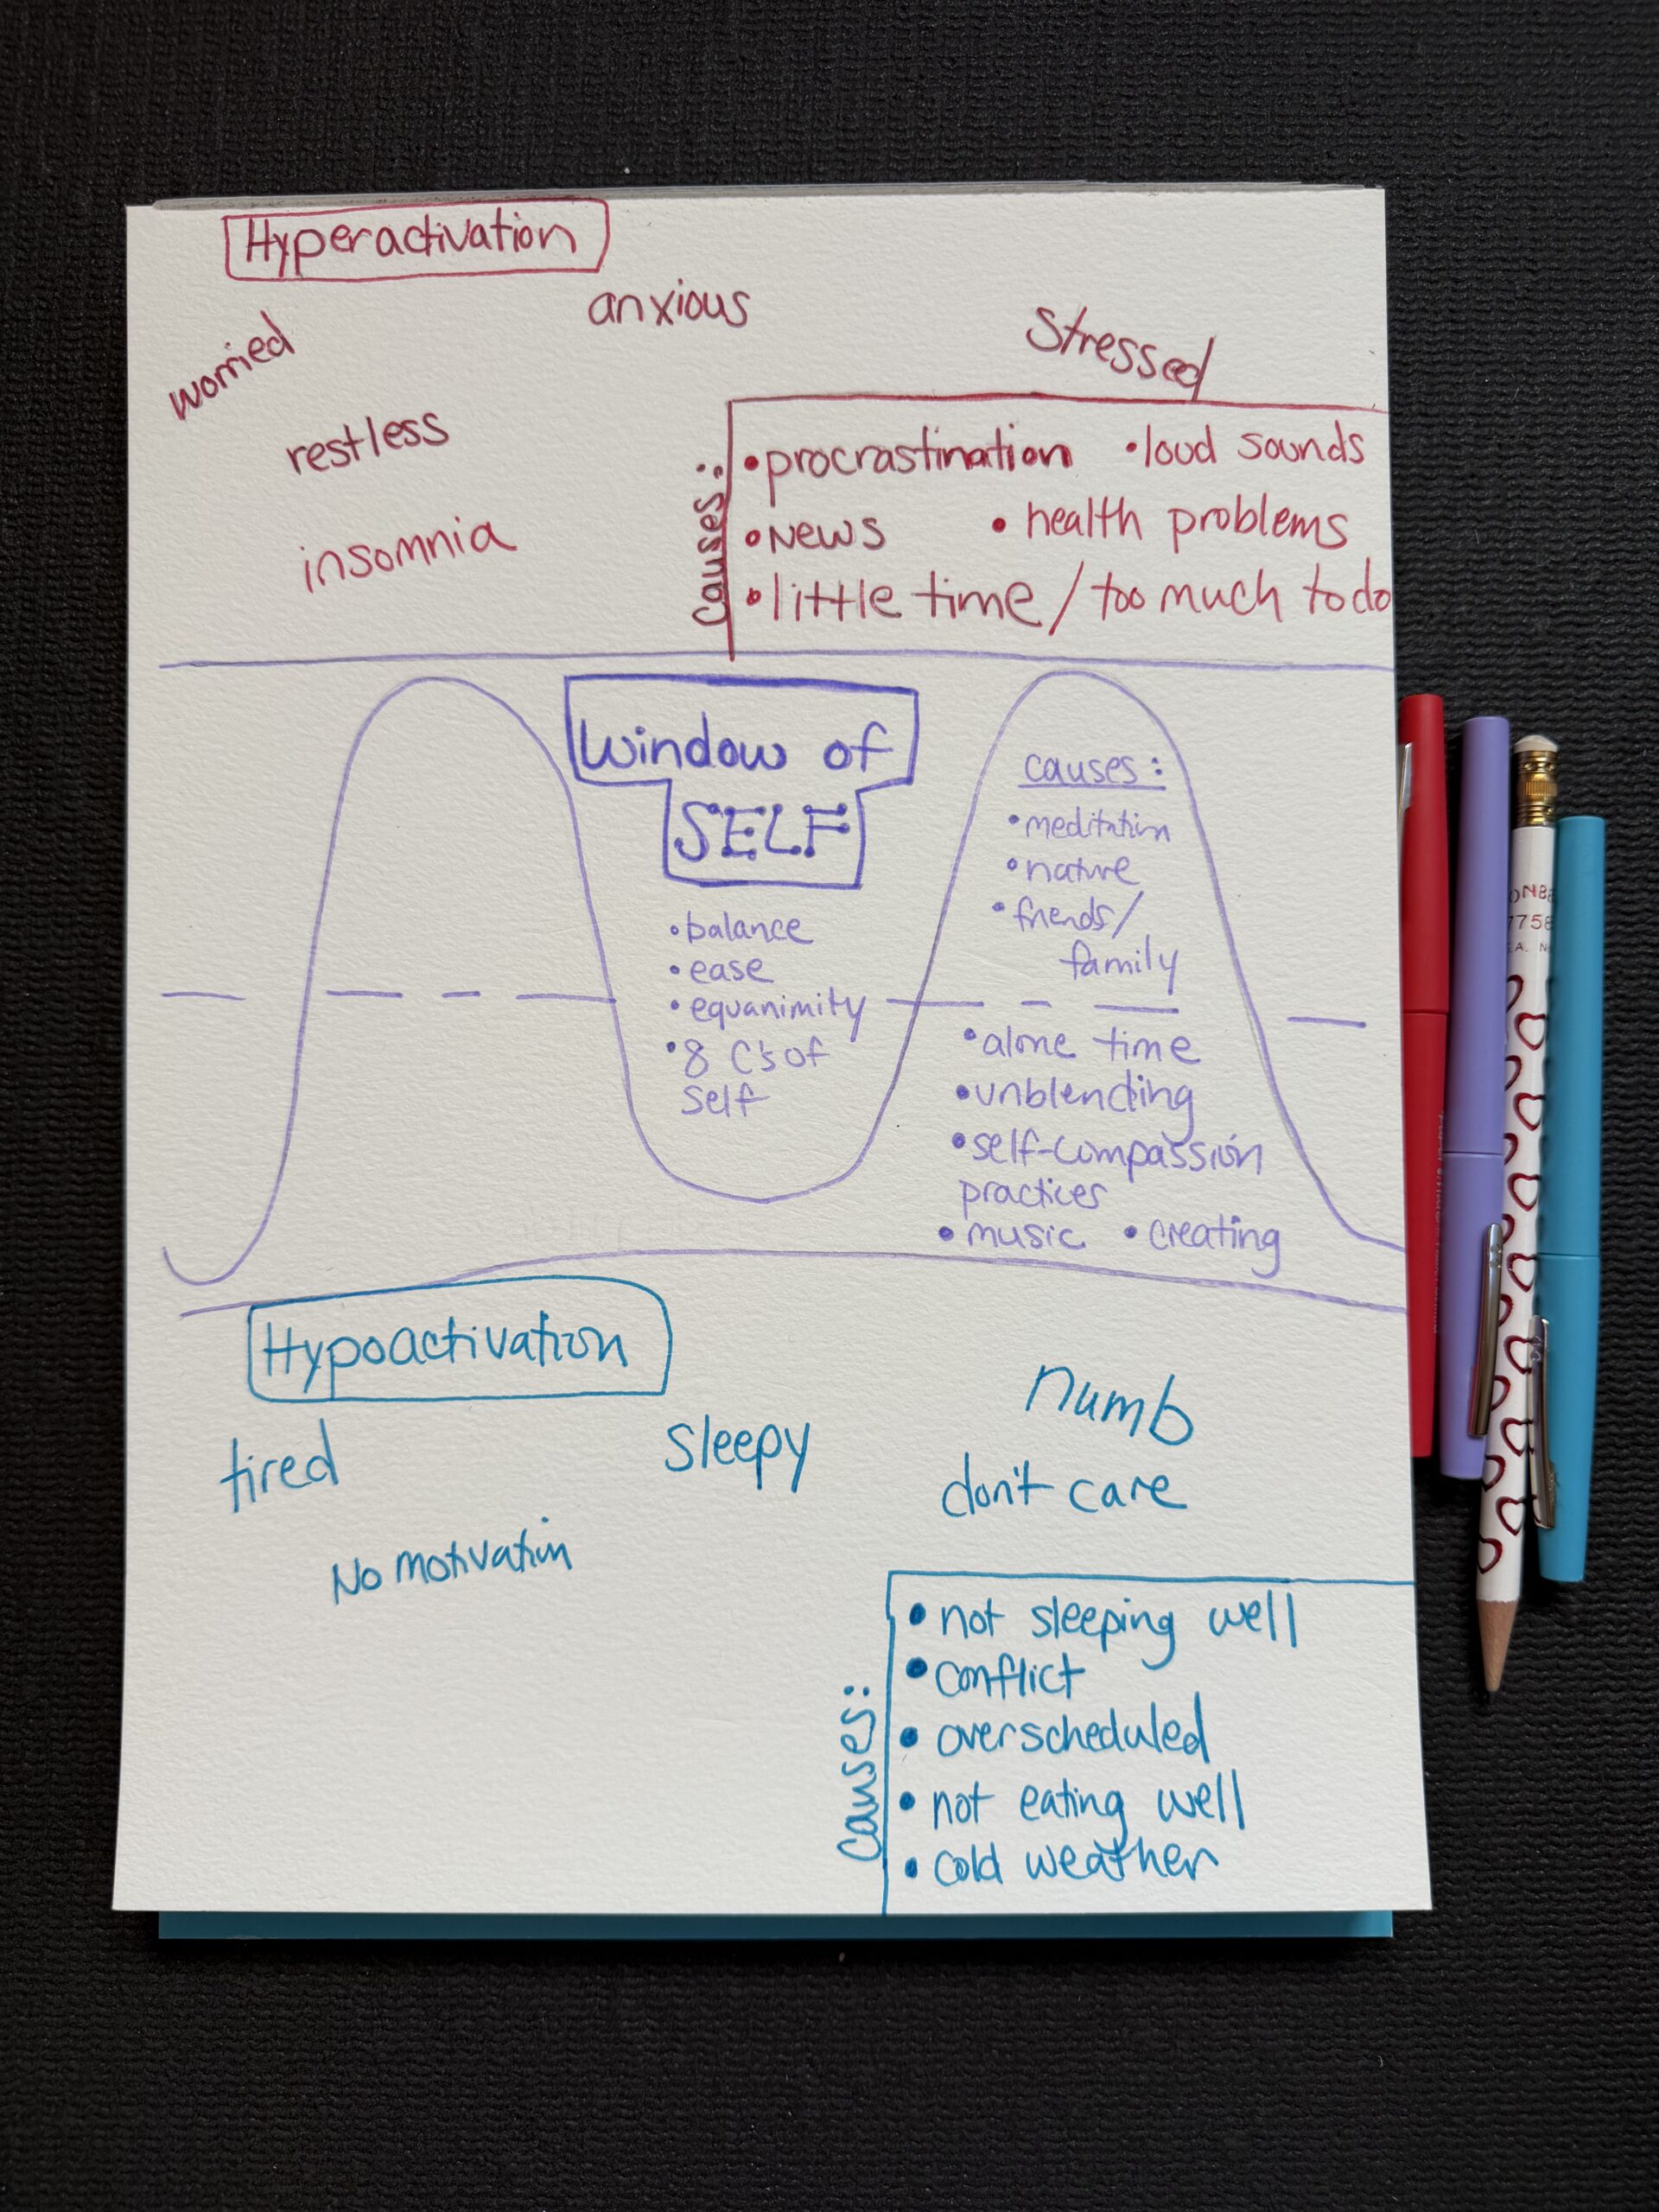 Hyperactivation
anxious
Stressed
worried
restless
insomnia
causes:
• procrastination • loud sounds
• News • health problems
• little time / too much to do
Window of
SELF
• balance
• ease
• equanimity
• 8 C's of
self
causes:
• meditation
• nature
• friends/
family
• alone time
• unblending
• self-compassion
practices
• music • creating
Hypoactivation
tired
sleepy
numb
don't care
No motivation
causes:
• not sleeping well
• conflict
• overscheduled
• not eating well
• cold weather
7758